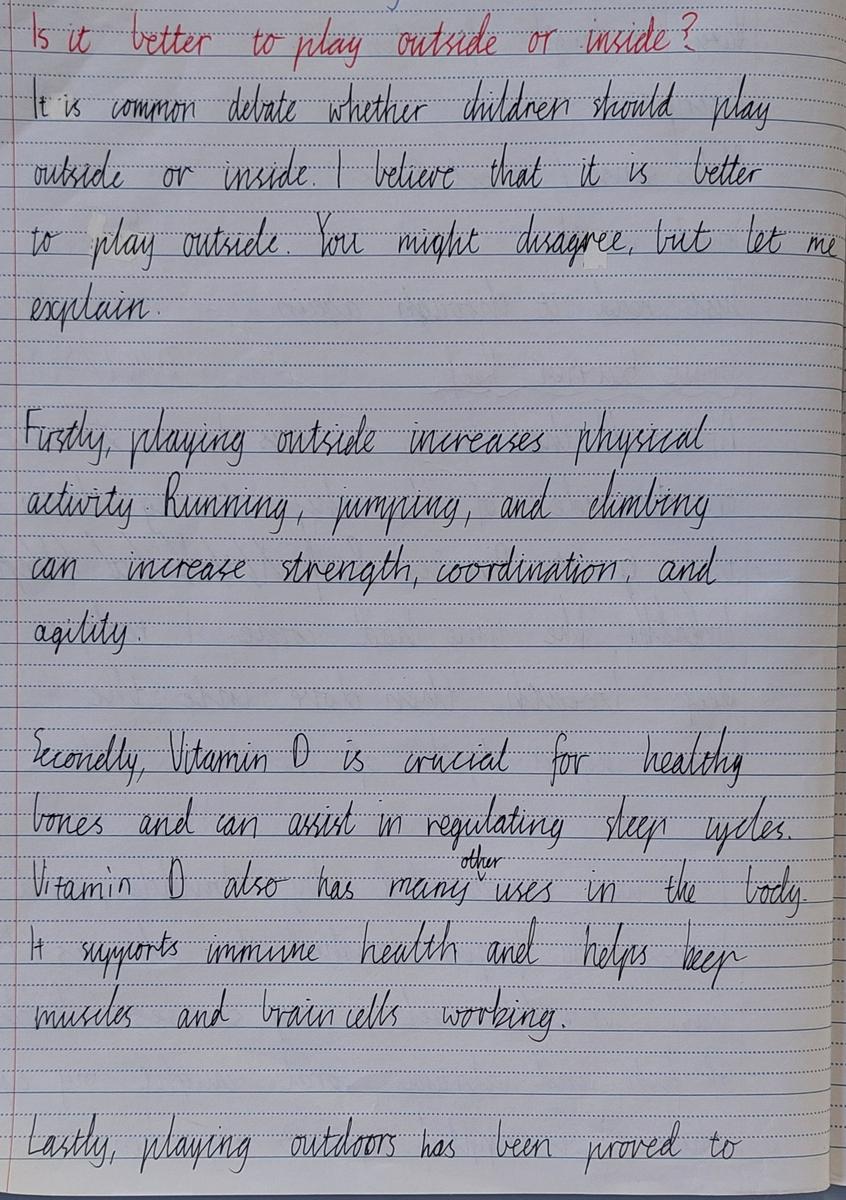 Is it better to play outside or inside?
It is common debate whether children should play
outside or inside. I believe that it is better
to play outside. You might disagree, but let me
explain.
Firstly, playing outside increases physical
activity. Running, jumping, and climbing
can increase strength, coordination, and
agility.
Secondly, Vitamin D is crucial for healthy
bones and can assist in regulating sleep cycles.
Vitamin D also has many other uses in the body.
It supports immune health and helps keep
muscles and brain cells working.
Lastly, playing outdoors has been proved to